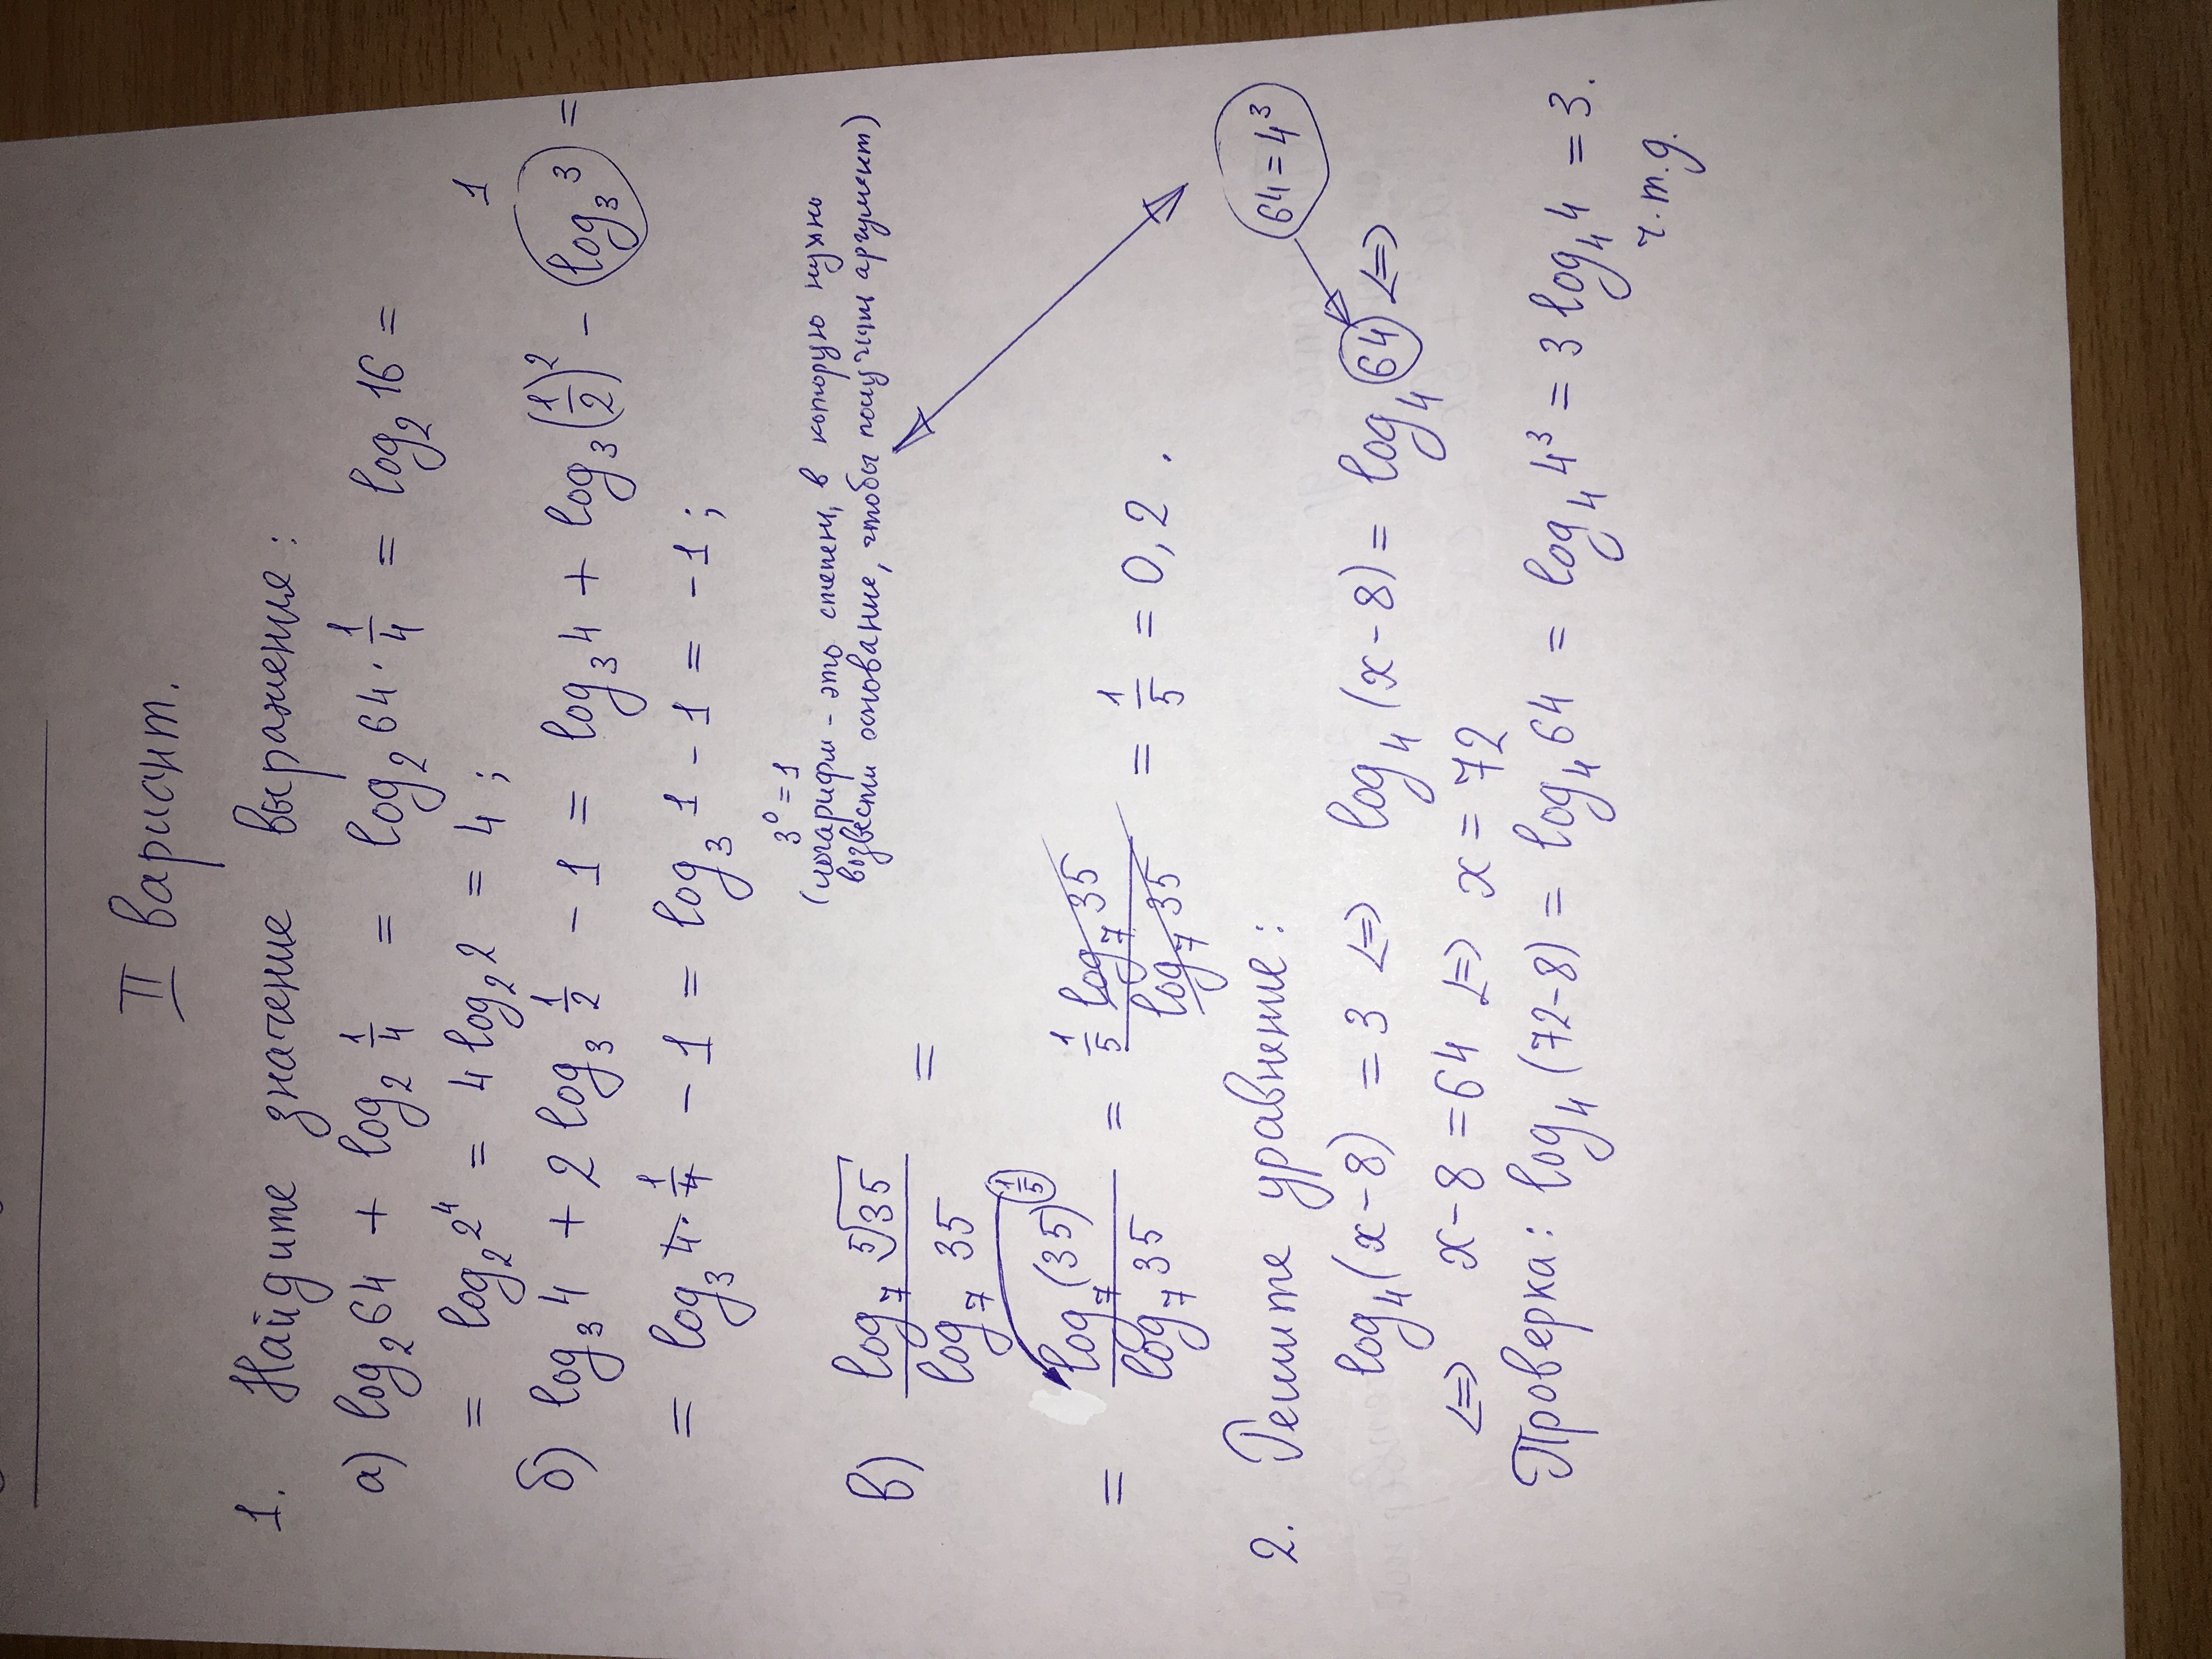 II вариант.
1. Найдите значение выражения:
а) log₂64 + log₂ 1/4 = log₂ 64 · 1/4 = log₂ 16 =
= log₂ 2⁴ = 4 log₂ 2 = 4;
б) log₃4 + 2 log₃ 1/2 - 1 = log₃ 4 + log₃ (1/2)² - log₃ 3 =
1
= log₃ 4 · 1/4 - 1 = log₃ 1 - 1 = -1;
3⁰ = 1
(логарифм - это степень, в которую нужно
возвести основание, чтобы получить аргумент)
в) log₇ ⁵√35 / log₇ 35 =
= log₇ (35)^(1/5) / log₇ 35 = 1/5 log₇ 35 / log₇ 35 = 1/5 = 0,2.
2. Решите уравнение:
64 = 4³
log₄(x-8) = 3 <=> log₄(x-8) = log₄ 64 <=>
<=> x-8 = 64 <=> x = 72
Проверка: log₄(72-8) = log₄ 64 = log₄ 4³ = 3 log₄ 4 = 3.
ч.т.д.